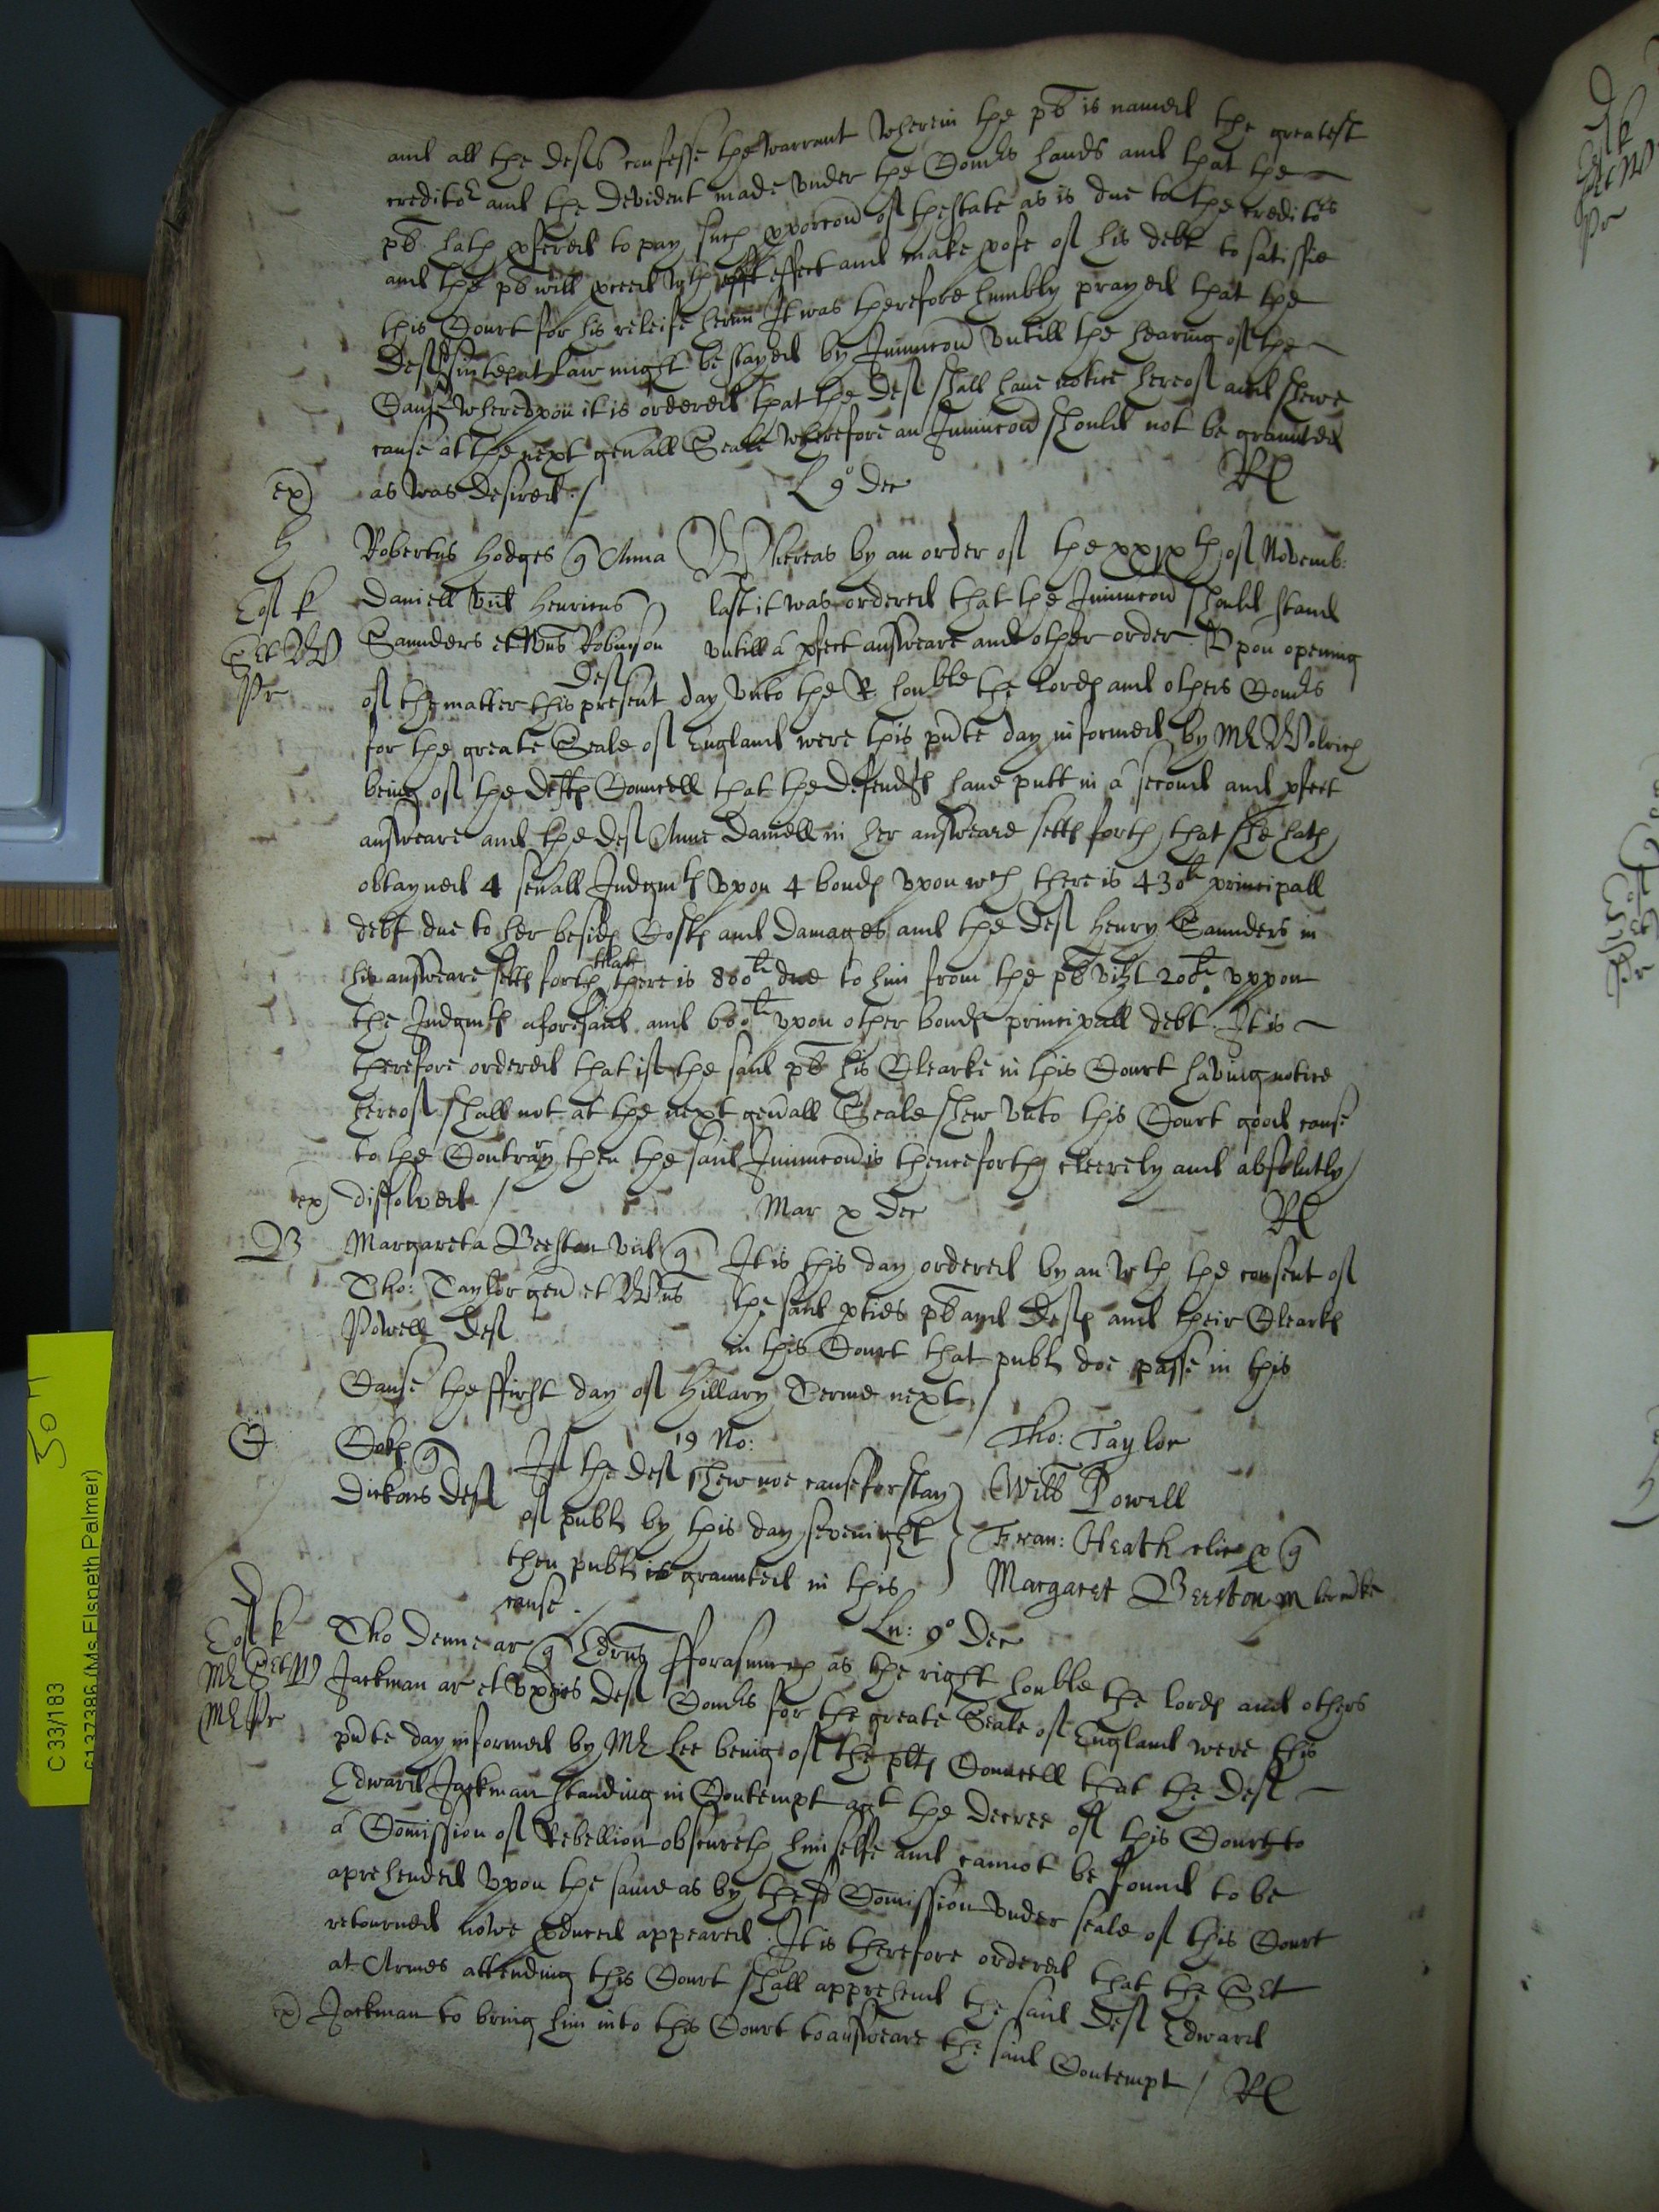 and all the defts confesse the warrant wherein the pl is named the greatest
creditor and the devident made under the Comrs hands and that the
pl hath pfered to pay such pporcon of thestate as is due to the creditors
and the pl will pceed wth effect and make pofe of his debt to satisfie
this Court for his releife herein It was therefore humbly prayed that the
Defts suite at law might be stayed by Iniunccon untill the hearing of the
Cause whereupon it is ordered that the deft shall have notice hereof and shewe
cause at the next genall Seale wherefore an Iniunccon should not be graunted
as was desired./
ex
L 9o Dec
RL
H
Robertus Hodges q Anna
Whereas by an order of the xxixth of Novemb:
Daniell vid Henricus
last it was ordered that the Iniunccon should stand
Saunders et Wms Robinson
untill a pfect answeare and other order Upon opening
Deft
of the matter this present day unto the R honble the lords and others Comrs
for the greate Seale of England were this pnte day informed by Mr Wolrich
being of the defts Councell that the defendts have putt in a second and pfect
answeare and the deft Anne Daniell in her answeare setth forth that she hath
obtayned 4 seuall Judgmts upon 4 bonds upon wch there is 430li principall
debt due to her besides Costs and damages and the deft Henry Saunders in
his answeare setth forth that there is 800li due to him from the pl vizt 200li uppon
the Judgmts aforesaid and 600li upon other bonds principall debt. It is
therefore ordered that if the said pl his Clearke in this Court having notice
hereof shall not at the next genall Seale shew unto this Court good cause
to the Contrary then the said Iniunccon is thenceforth cleerely and absolutly
ex
dissolved /
Mar x Dec
RL
B
Margareta Beeston vid q
It is this day ordered by an wth the consent of
Tho: Taylor gen et Wms
the said pties pl and defts and their Clearks
Powell Deft
in this Court that publ doe passe in this
Cause the ffirst day of Hillary Terme next /
C
19 No:
Tho: Taylor
If the deft shew noe cause for stay
Will Powell
Dickons Deft
of publ by this day sevenight
Fran: Heath
then publ is graunted in this
Margaret Beeston
cause.
D
Ln: 9o Dec
Tho Denne ar q Edrus
fforasmuch as the right honble the lords and others
Jackman ar et uxor Deft
Comrs for the greate Seale of England were this
pnte day informed by Mr Lee being of the plts Councell that the deft
Edward Jackman standing in Contempt agt the decree of this Court to
a Comission of Rebellion obscureth himselfe and cannot be found to be
aprehended upon the same as by the sd Comission under seale of this Court
retourned nowe pduced appeared. It is therefore ordered that the Sert
at Armes attending this Court shall apprehend the said deft Edward
ex
Jackman to bring him into this Court to answeare the said Contempt / RL
C 33/183
6137386 (Ms Elspeth Palmer)